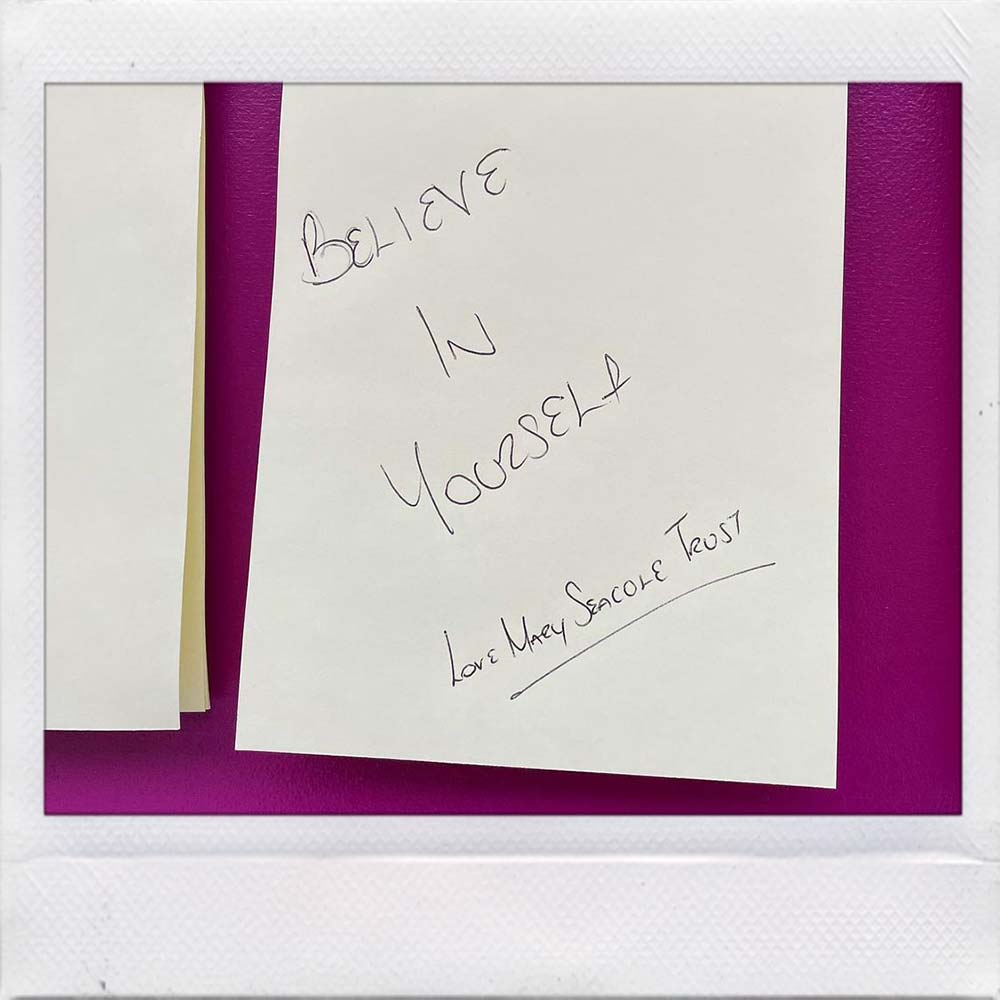 BELIEVE
IN
YOURSELF
LOVE MARY SEACOLE TRUST